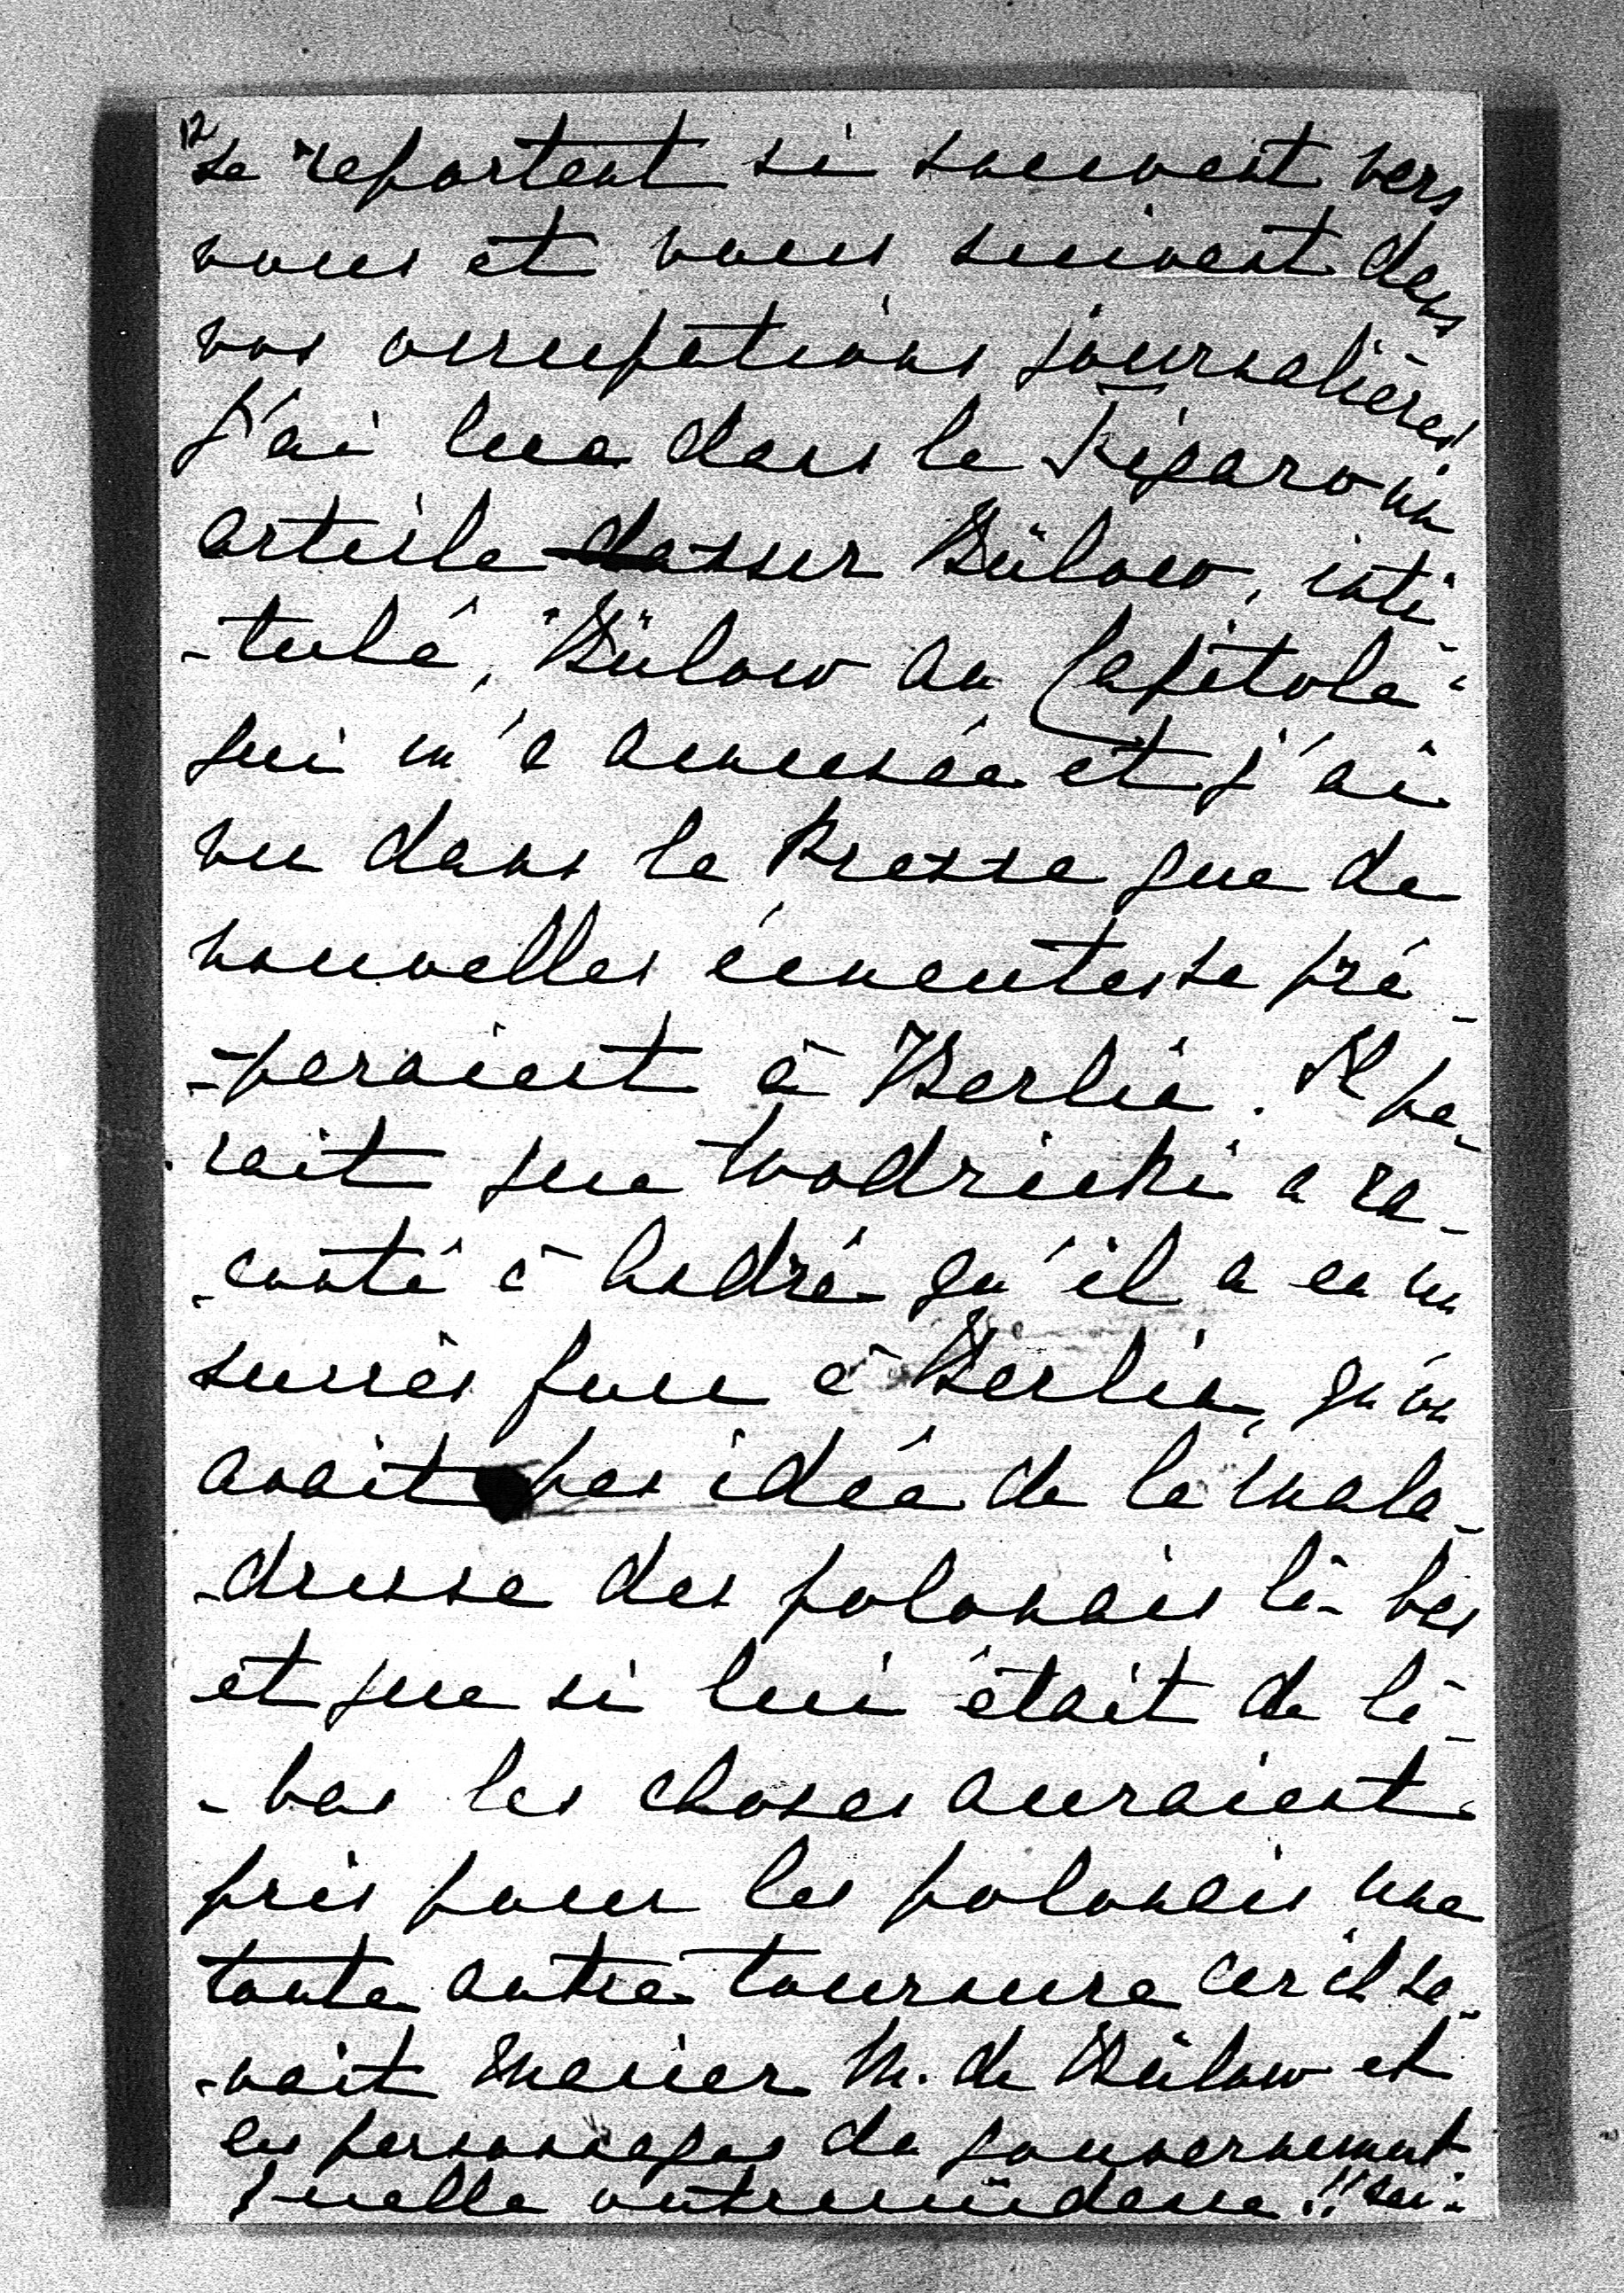 12
se reportent si souvent vers
vous et vous suivent dans
vos occupations journalières
J'ai lu dans le Figaro un
article sur Bülow, inti-
-tulé, "Bülow au Capitole"
qui m'a amusée et j'ai
vu dans la Presse que de
nouvelles émeutes se pré-
-paraient à Berlin. Il pa-
rait que Wodzicki a ra-
-conté à André qu'il a eu un
succès fou à Berlin, qu'on
avait pas idée de la mala-
-dresse des polonais là-bas
et que si lui était de là-
-bas les choses auraient
pris pour les polonais une
toute autre tournure car il sa-
-vait manier M. de Bülow et
les personnages du gouvernement
Quelle outrecuidance!!